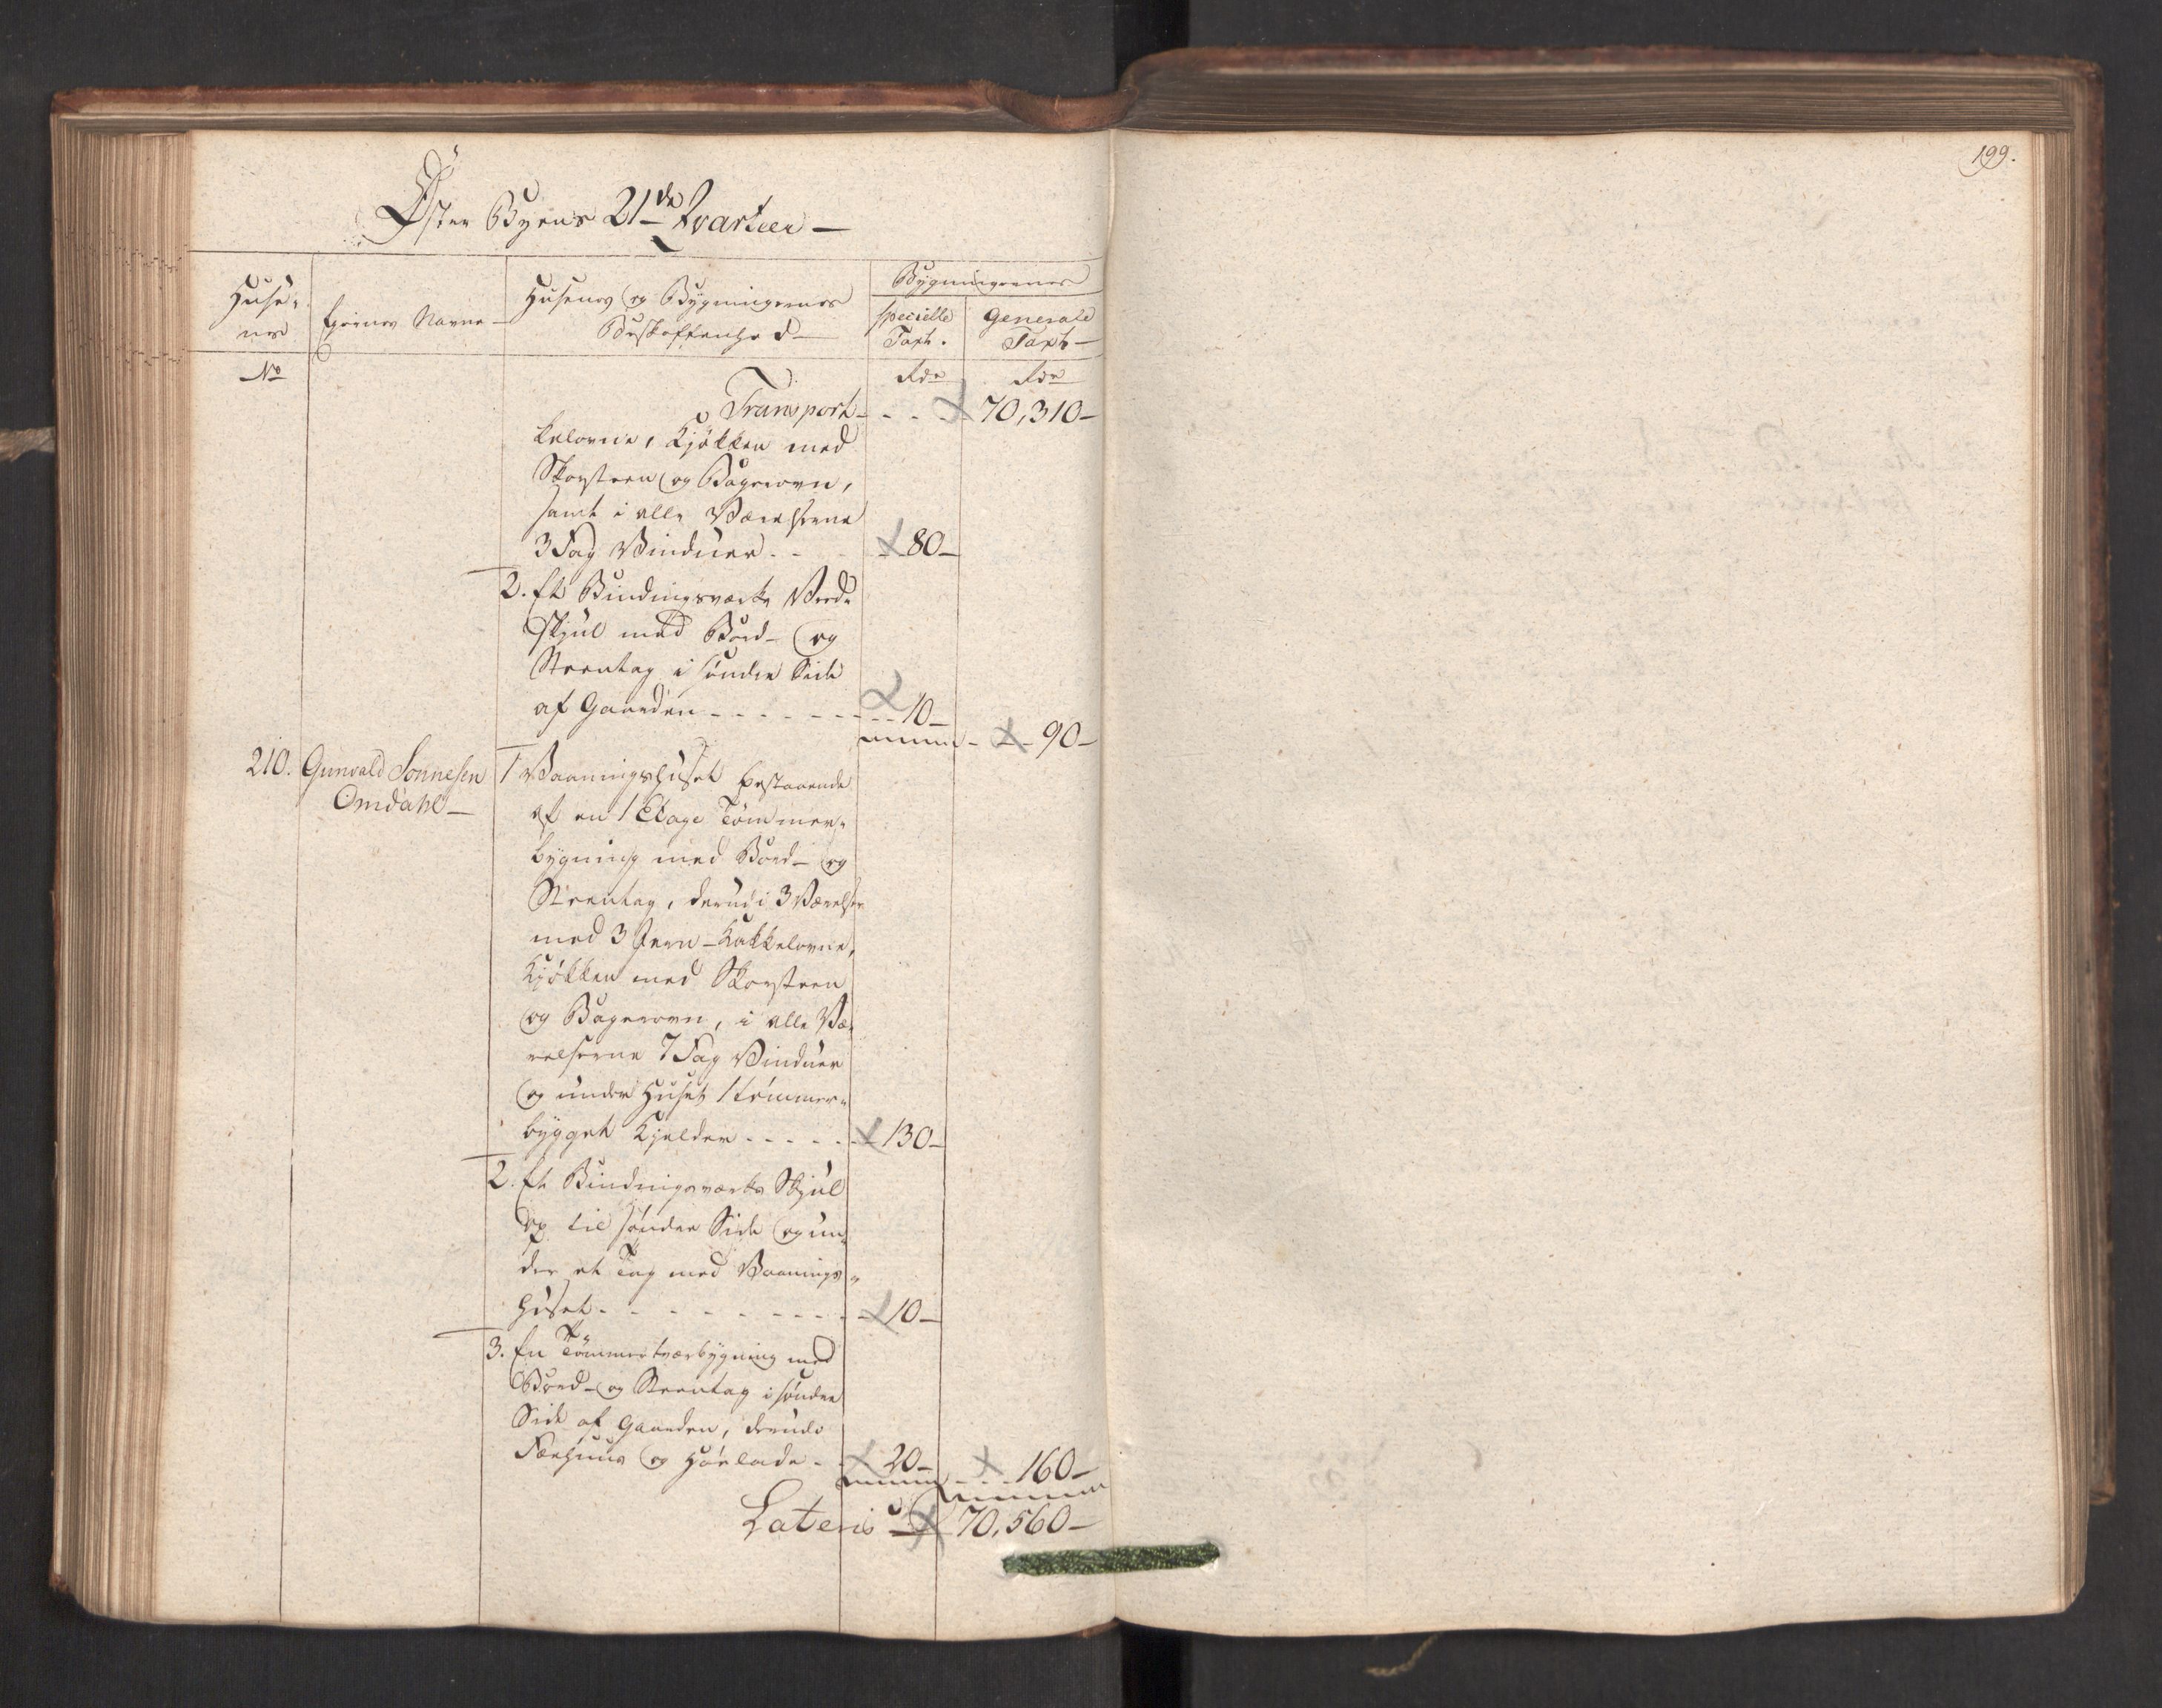 199.
Øster Byens 21de Qvarteer
Huse-
nes
Ejernes Navne
Husenes og Bygningernes
Beskaffenhed
Bygningernes
specielle
Taxt.
Generale
Taxt
No
Rdr
Rdr
Transport - - - 70,310
kelovne, Kjøkken med
Skorsteen og Bagerovn,
samt i alle Værelserne
3 Fag Vinduer - - 80
2. Et Bindingsværks Ved-
skjul med Bord- og
Steentag i søndre Side
af Gaarden - - - - 10
90
210. Gunvald Sonnesen
Omdahl
1 Vaaningshuset bestaaende
af en 1 Etage Tømmer-
bygning med Bord- og
Steentag, derudi 3 Værelser
med 3 Jern-Kakkelovne,
Kjøkken med Skorsteen
og Bagerovn, i alle Væ-
relserne 7 Fag Vinduer
og under Huset 1 tømmer-
bygget Kjelder - - - - 130
2. Et Bindingsværks Skjul
op til søndre Side og un-
der et Tag med Vaanings-
huset - - - - 10
3. En Tømmertværbygning med
Bord- og Steentag i søndre
Side af Gaarden, derudi
Fæehuus og Høelade - 20
160
Lateris 70,560